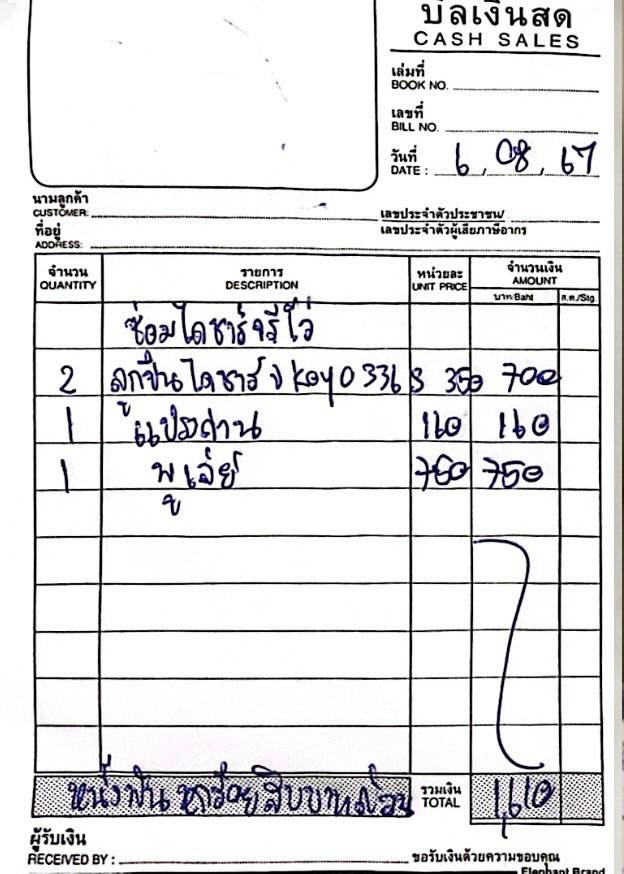 บิลเงินสด
CASH SALES
เล่มที่
BOOK NO.
เลขที่
BILL NO.
วันที่
DATE : 6, 08, 67
นามลูกค้า
CUSTOMER:
เลขประจำตัวประชาชน/
ที่อยู่
เลขประจำตัวผู้เสียภาษีอากร
ADDRESS:
จำนวน รายการ หน่วยละ จำนวนเงิน
QUANTITY DESCRIPTION UNIT PRICE AMOUNT
บาท/Baht ส.ต./Stg.
ซ่อมไดชาร์จรีโว่
2 ลูกปืนไดชาร์จ Koyo 336 350 700
1 แปรงถ่าน 110 160
1 พูเล่ย์ 750 750
หนึ่งพันหกร้อยสิบบาทถ้วน รวมเงิน 1,610
TOTAL
ผู้รับเงิน
RECEIVED BY : ขอรับเงินด้วยความขอบคุณ
Elephant Brand